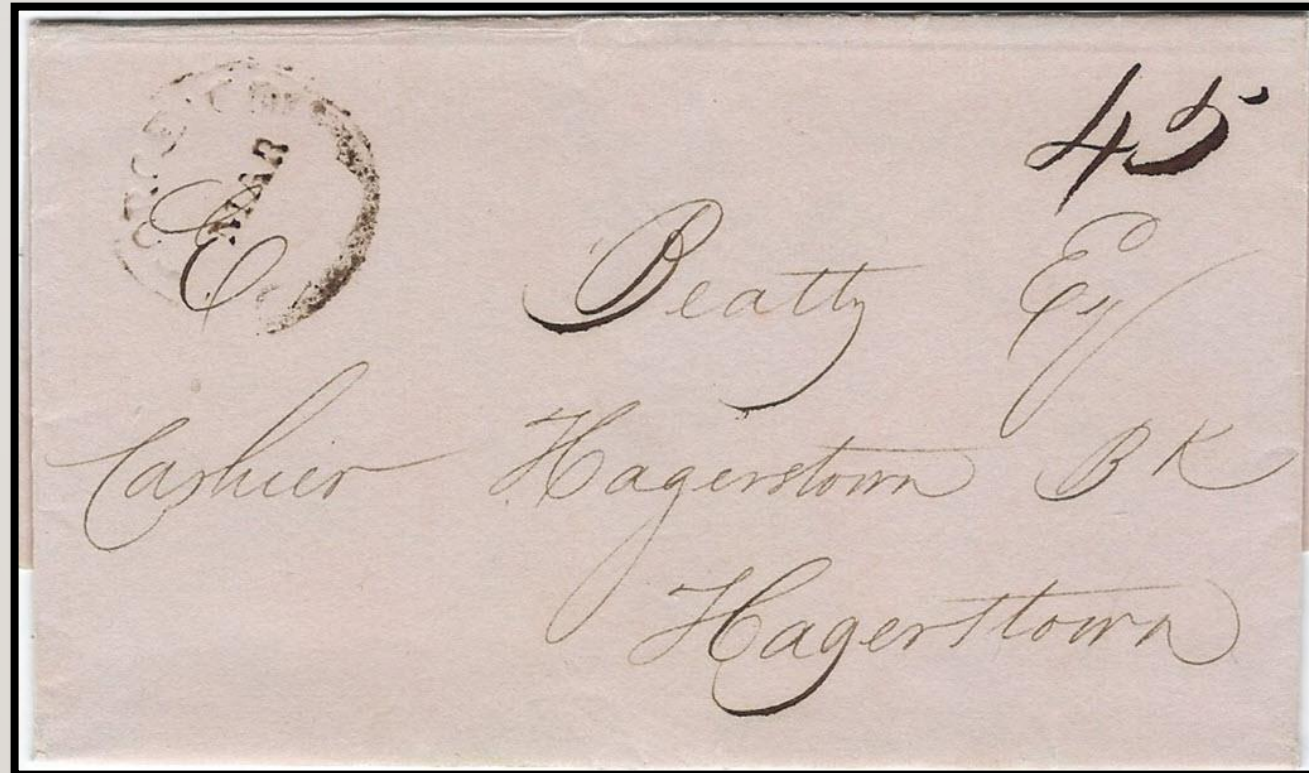 MAR
45
E. Beatty Esq
Cashier Hagerstown BK
Hagerstown